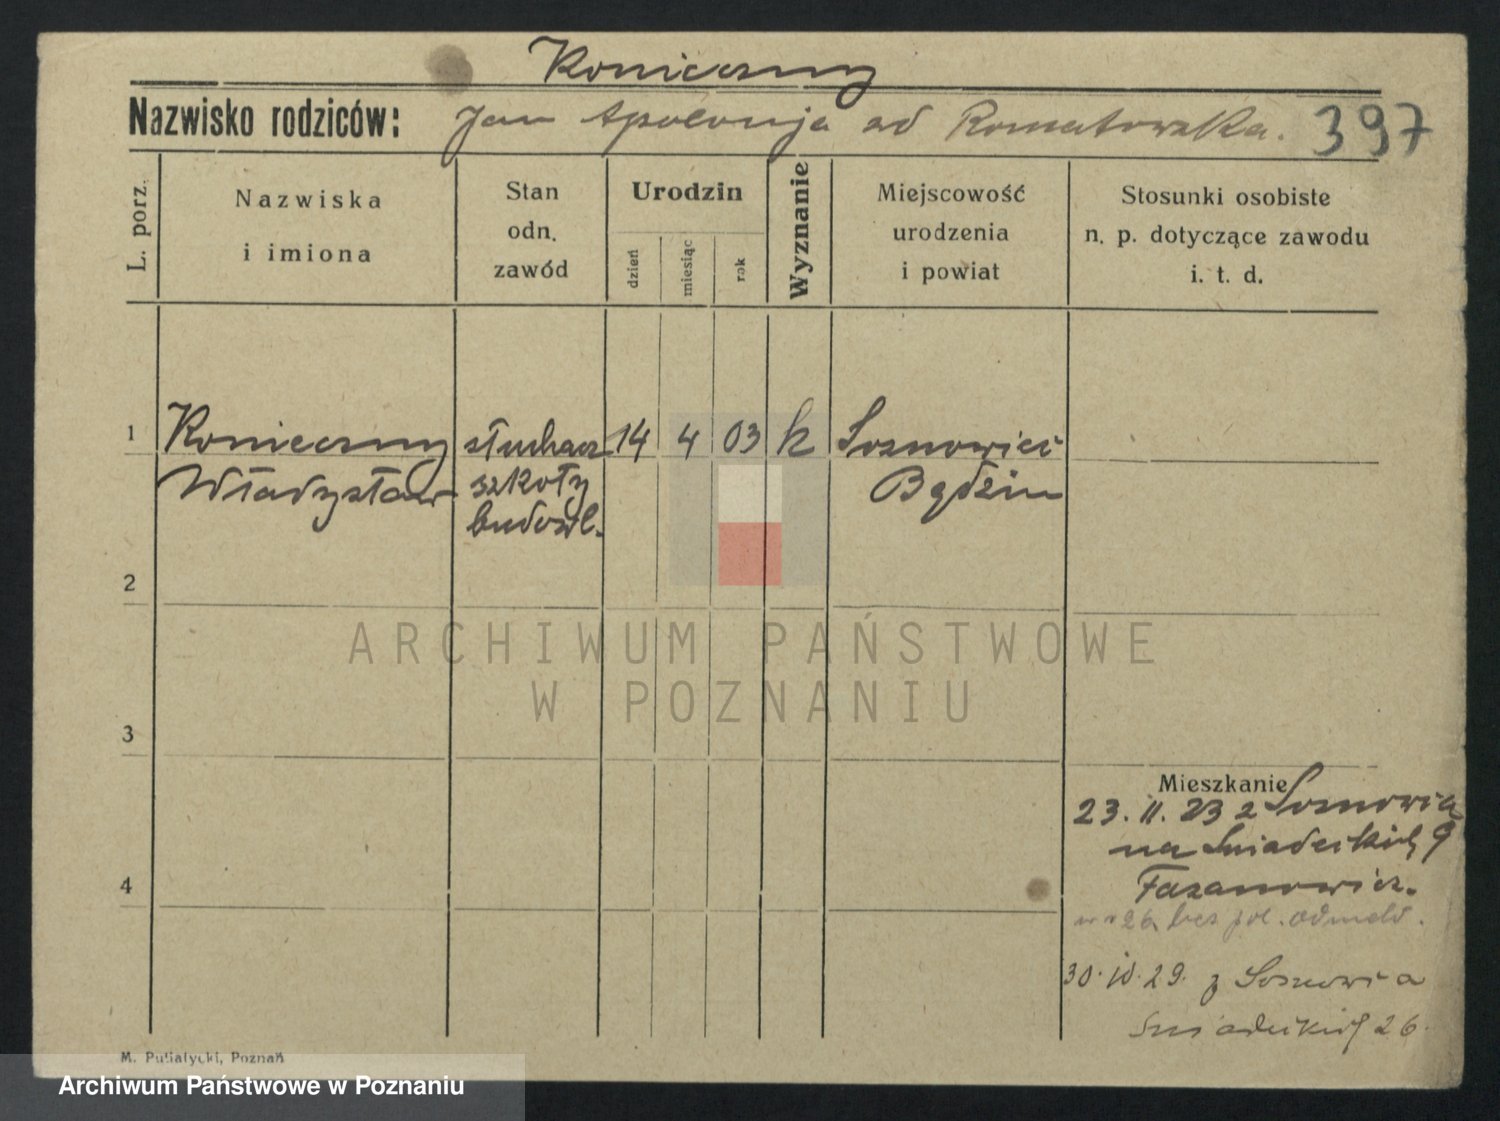 Konieczny
Nazwisko rodziców: Jan Apolonja od Romatowska. 397
L. porz.
Nazwiska
i imiona
Stan
odn.
zawód
Urodzin
dzień
miesiąc
rok
Wyznanie
Miejscowość
urodzenia
i powiat
Stosunki osobiste
n. p. dotyczące zawodu
i. t. d.
1 Konieczny słuchacz 14 4 03 k Sosnowiec
Władysław szkoły Będzin
budowl.
2
ARCHIWUM PAŃSTWOWE
W POZNANIU
3
Mieszkanie
23. 11. 23 z Sosnowca
na Śniadeckich 9
Fazanowicz.
4
26 bez pol. odmeld.
30. 10. 29. z Sosnowca
Śniadeckich 26.
M. Putiatycki, Poznań
Archiwum Państwowe w Poznaniu